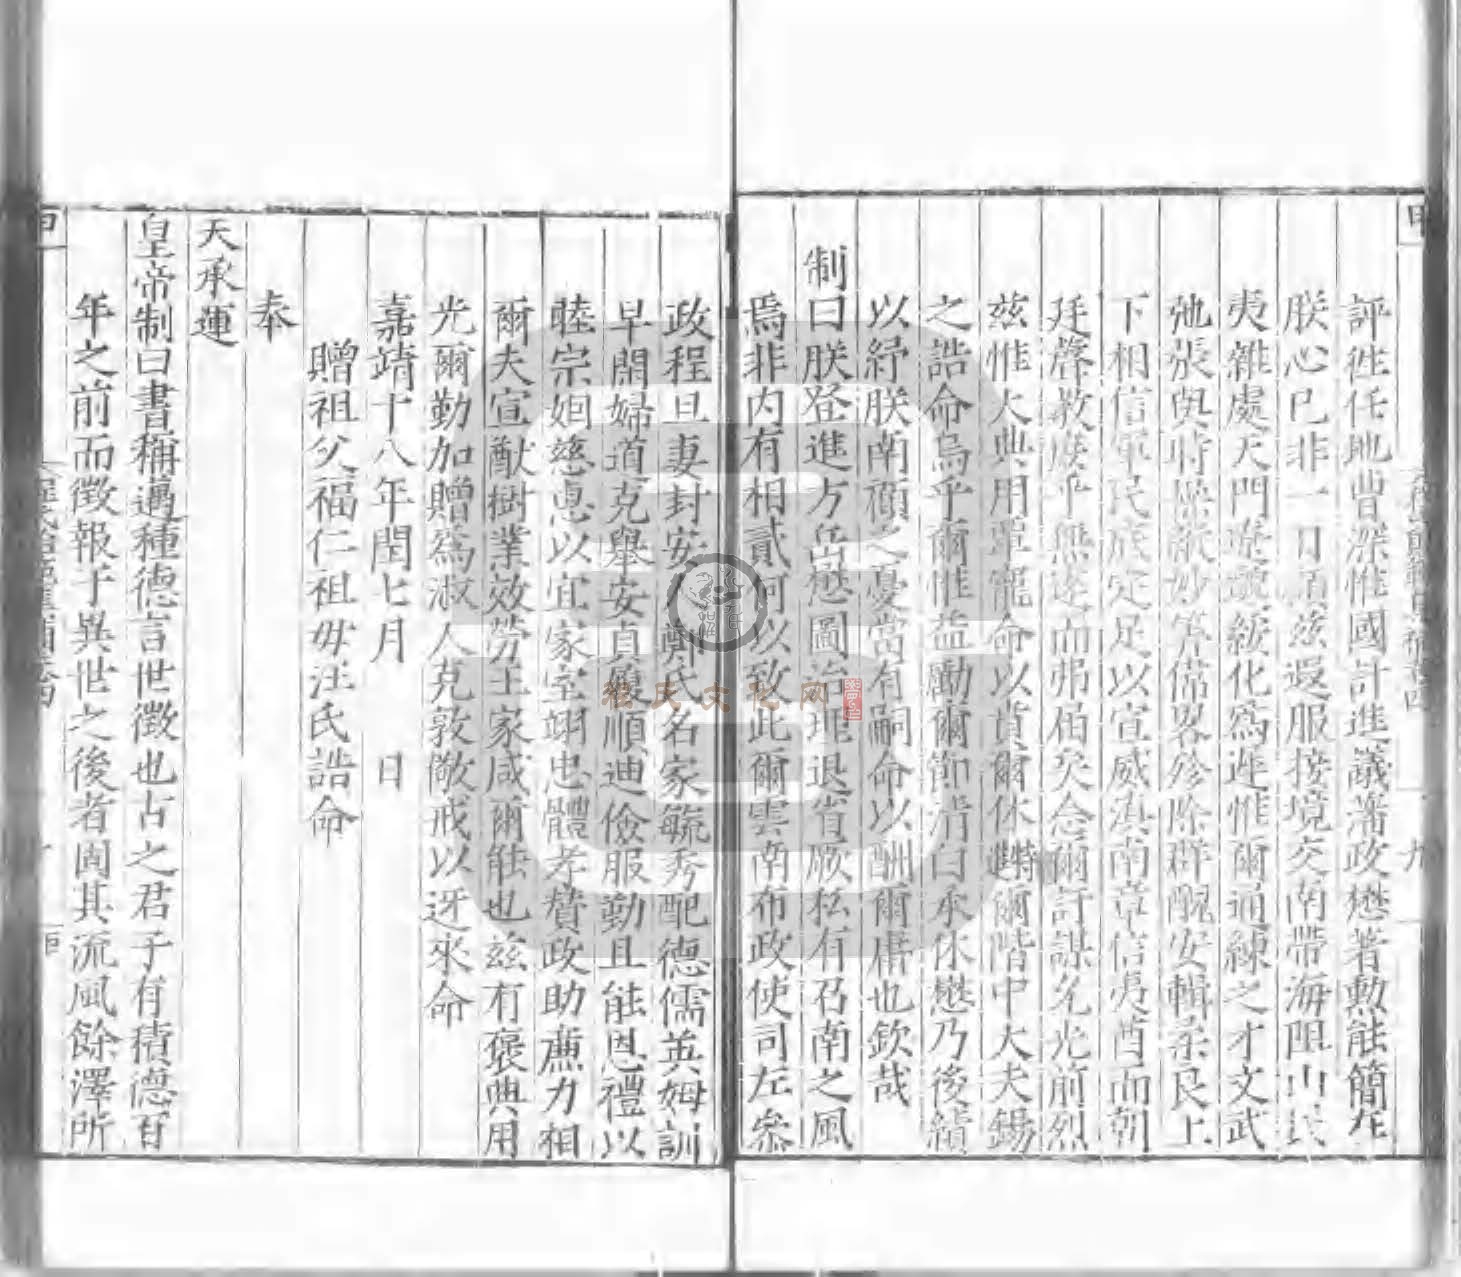 評徃任地曹深惟國計進議藩政懋著勲能簡在
朕心已非一日通兹遐服接境交南帶海阻山
夷雜處天門 緩化為難惟爾通練之才文武
弛張與時 妙筭備畧殄除群醜安輯柔良上
下相信軍民底定足以宣威滇南章信夷酋而朝
廷聲教庶乎無遠而弗届矣念爾訏謀允光前烈
兹惟大典用 寵命以賁爾休特進爾階中大夫錫
之誥命烏乎爾惟益勵爾節清白承休懋乃後績
以紓朕南顧之憂當有嗣命以酬爾庸也欽哉
制曰朕登進方岳懋圖治理退省厥私有召南之風
焉非内有相貳何以致此爾雲南布政使司左叅
政程旦妻封安人鄭氏名家毓秀配德儒英姆訓
早閑婦道克舉安貞履順迪儉服勤且能恩禮以
睦宗姻慈惠以宜家室翊忠體孝贊政助亷力相
爾夫宣猷樹業效勞王家咸爾能也兹有褒典用
光爾勤加贈為淑人克敦儆戒以迓來命
嘉靖十八年閏七月 日
贈祖父福仁祖母汪氏誥命
奉
天承運
皇帝制曰書稱邁種德言世徵也古之君子有積德百
年之前而徵報于異世之後者固其流風餘澤所
九
程氏文化网